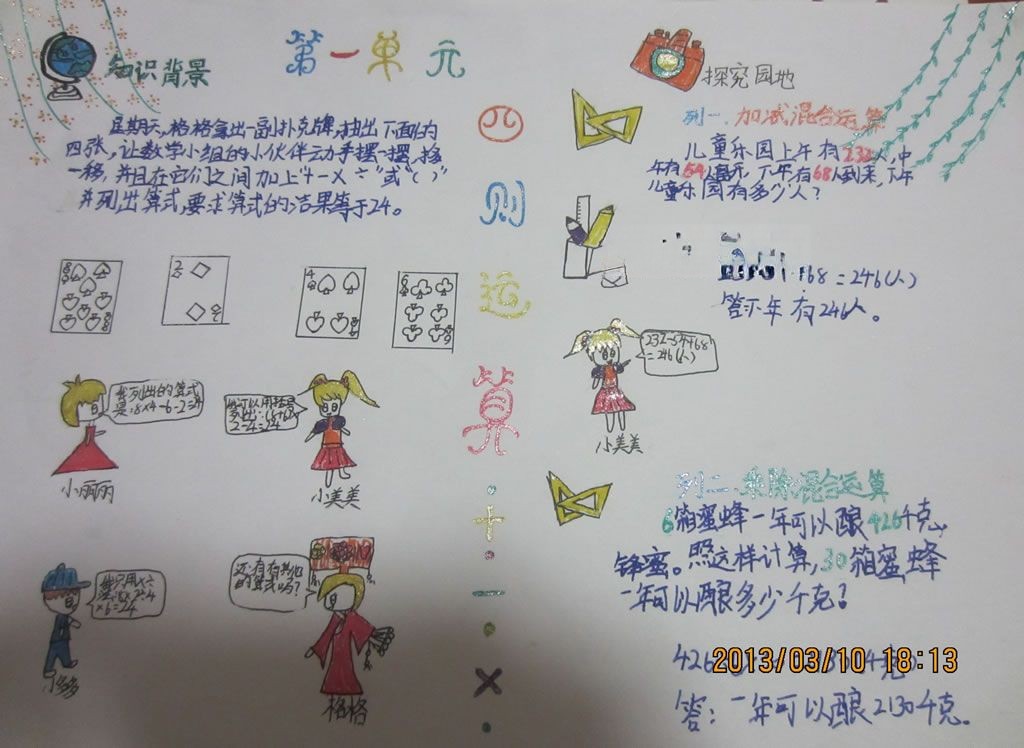 第一单元
知识背景
星期天,格格拿出一副扑克牌,抽出下面的
四张,让数学小组的小伙伴动手摆一摆,移
一移,并且在它们之间加上"+-×÷"或"()"
并列出算式,要求算式的结果等于24。
8
2
4
6
我列出的算式
是:8×4-6-2=24
小丽丽
小美美
我只用×÷
×6=24
小多多
还有有其他
的算式吗?
格格
四
则
运
算
·
+
·
-
·
×
·
探究园地
列一.加减混合运算
儿童乐园上午有232人,中
午有54人离开,下午有68人到来,下午
儿童乐园有多少人?
68=246(人)
答:下午有246人。
232-54+68
=246(人)
小美美
列二.乘除混合运算
6箱蜜蜂一年可以酿426千克
蜂蜜。照这样计算,30箱蜜蜂
一年可以酿多少千克?
426
2013/03/10 18:13
答:一年可以酿2130千克。